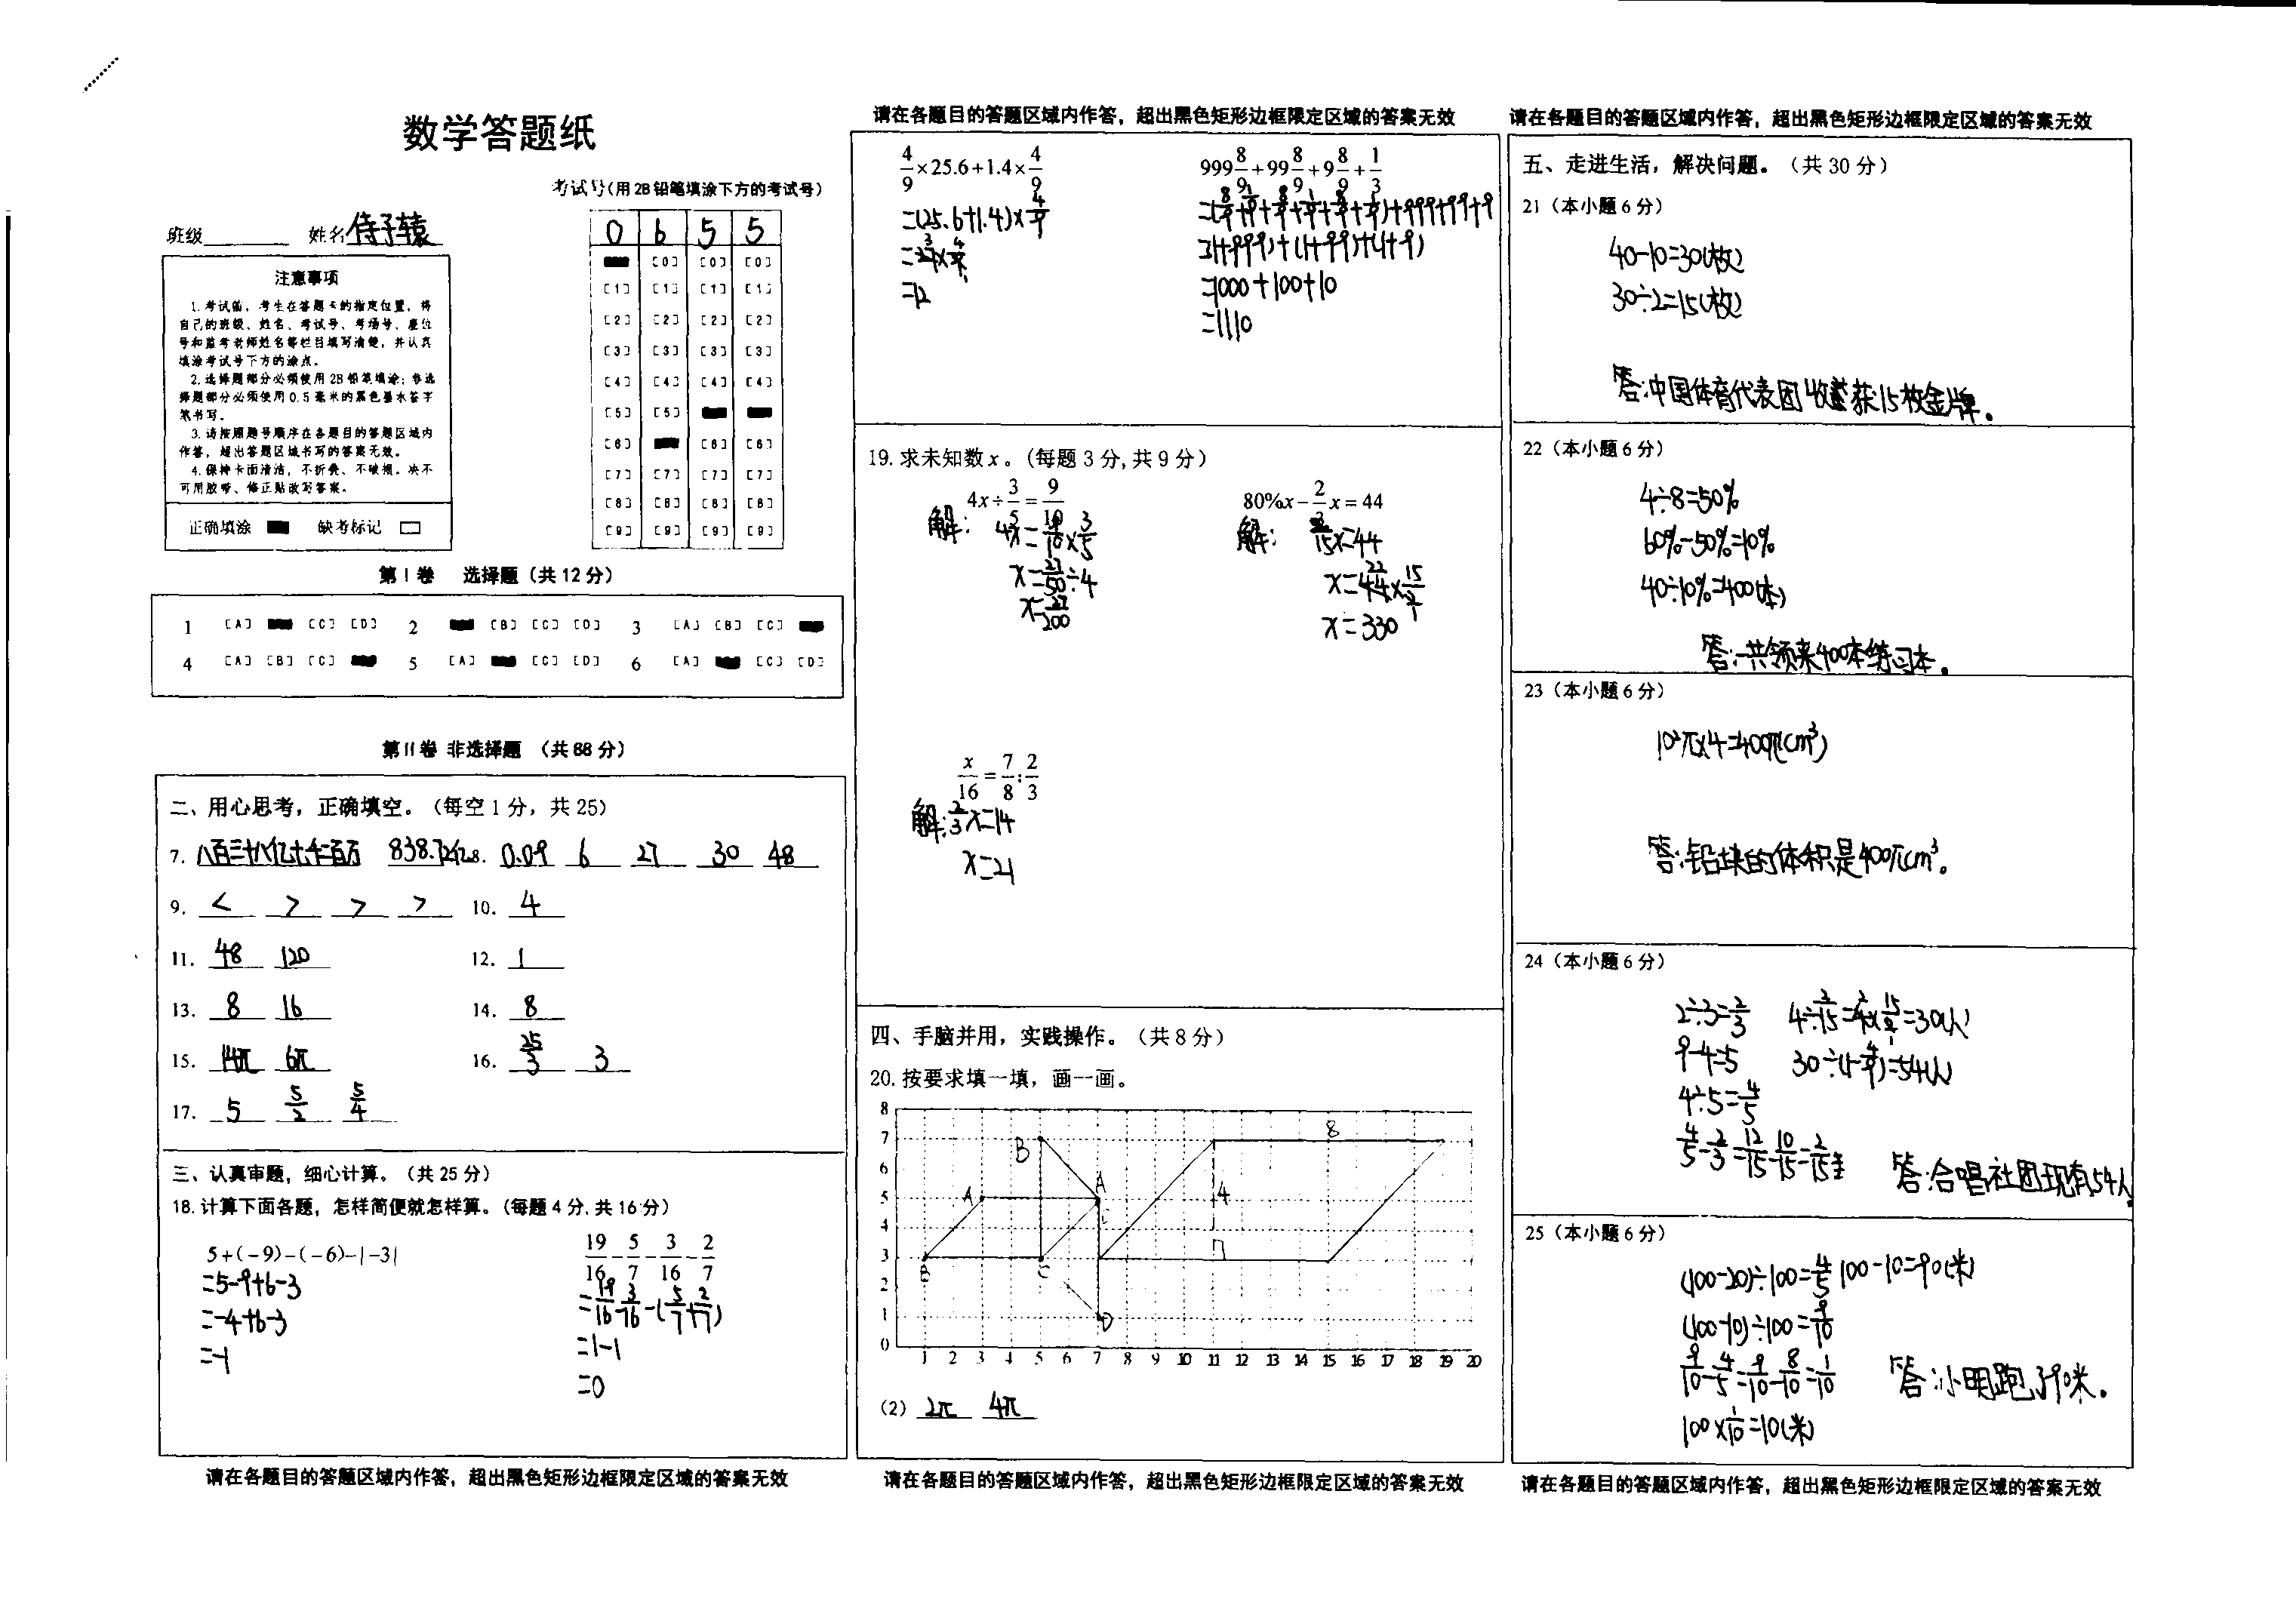 数学答题纸
考试号(用2B铅笔填涂下方的考试号)
班级 姓名 侍子辕
0 6 5 5
[0] [0] [0]
[1] [1] [1] [1]
[2] [2] [2] [2]
[3] [3] [3] [3]
[4] [4] [4] [4]
[5] [5]
[6] [6] [6]
[7] [7] [7] [7]
[8] [8] [8] [8]
[9] [9] [9] [9]
注意事项
1.考试前,考生在答题卡的指定位置,将
自己的班级、姓名、考试号、考场号、座位
号和监考老师姓名等栏目填写清楚,并认真
填涂考试号下方的涂点。
2.选择题部分必须使用2B铅笔填涂;非选
择题部分必须使用0.5毫米的黑色墨水签字
笔书写。
3.请按照题号顺序在各题目的答题区域内
作答,超出答题区域书写的答案无效。
4.保持卡面清洁,不折叠、不破损。决不
可用胶带、修正贴改写答案。
正确填涂 缺考标记
第I卷 选择题(共12分)
1 [A] [C] [D] 2 [B] [C] [D] 3 [A] [B] [C]
4 [A] [B] [C] 5 [A] [C] [D] 6 [A] [C] [D]
第II卷 非选择题 (共88分)
二、用心思考,正确填空。(每空1分,共25)
7. 八百三十八亿七千二百万 838.72亿 8. 0.09 6 27 30 48
9. < > > > 10. 4
11. 48 120 12. 1
13. 8 16 14. 8
15. 14π 6π 16. 25/3 3
17. 5 5/2 5/4
三、认真审题,细心计算。(共25分)
18.计算下面各题,怎样简便就怎样算。(每题4分,共16分)
5+(-9)-(-6)-|-3|
=5-9+6-3
=-4+6-3
=-1
19/16-5/7-3/16-2/7
=19/16-3/16-(5/7+2/7)
=1-1
=0
请在各题目的答题区域内作答,超出黑色矩形边框限定区域的答案无效
请在各题目的答题区域内作答,超出黑色矩形边框限定区域的答案无效
4/9×25.6+1.4×4/9
=(25.6+1.4)×4/9
=27×4/9
=12
999 8/9+99 8/9+9 8/9+1/3
=(8/9+1/9+8/9+1/9+8/9+1/9)+999+99+9
=(1+999)+(1+99)+(1+9)
=1000+100+10
=1110
19.求未知数x。(每题3分,共9分)
4x÷3/5=9/10
解: 4x=9/10×3/5
x=27/50÷4
x=27/200
80%x-2/3x=44
解: 2/15x=44
x=44×15/2
x=330
x/16=7/8:2/3
解:2/3x=14
x=21
四、手脑并用,实践操作。(共8分)
20.按要求填一填,画一画。
8
7
6
5
4
3
2
1
0
1 2 3 4 5 6 7 8 9 10 11 12 13 14 15 16 17 18 19 20
B 8
A A 4
B C
D
(2) 2π 4π
请在各题目的答题区域内作答,超出黑色矩形边框限定区域的答案无效
请在各题目的答题区域内作答,超出黑色矩形边框限定区域的答案无效
五、走进生活,解决问题。(共30分)
21(本小题6分)
40-10=30(枚)
30÷2=15(枚)
答:中国体育代表团获15枚金牌。
22(本小题6分)
4÷8=50%
60%-50%=10%
40÷10%=400(本)
答:一共领来400本练习本。
23(本小题6分)
10²π×4=400π(cm³)
答:铅块的体积是400πcm³。
24(本小题6分)
2÷3=2/3 4÷2/15=4×15/2=30(人)
9-4=5 30÷(1-4/9)=54(人)
4÷5=4/5
4/5-2/3=12/15-10/15=2/15
答:合唱社团现有54人
25(本小题6分)
(100-20)÷100=4/5 100-10=90(米)
(100-10)÷100=9/10
9/10-4/5=9/10-8/10=1/10 答:小明跑了90米。
100×1/10=10(米)
请在各题目的答题区域内作答,超出黑色矩形边框限定区域的答案无效